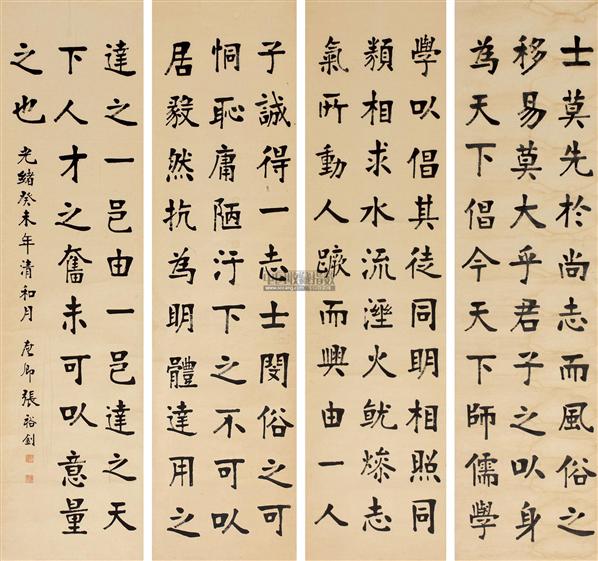 士莫先於尚志而風俗之
移易莫大乎君子之以身
為天下倡今天下師儒學
學以倡其徒同明相照同
類相求水流溼火就燥志
氣所動人蹶而興由一人
子誠得一志士閔俗之可
恫恥庸陋汙下之不可以
居毅然抗為明體達用之
達之一邑由一邑達之天
下人才之奮未可以意量
之也
光緒癸未年清和月 廉卿張裕釗